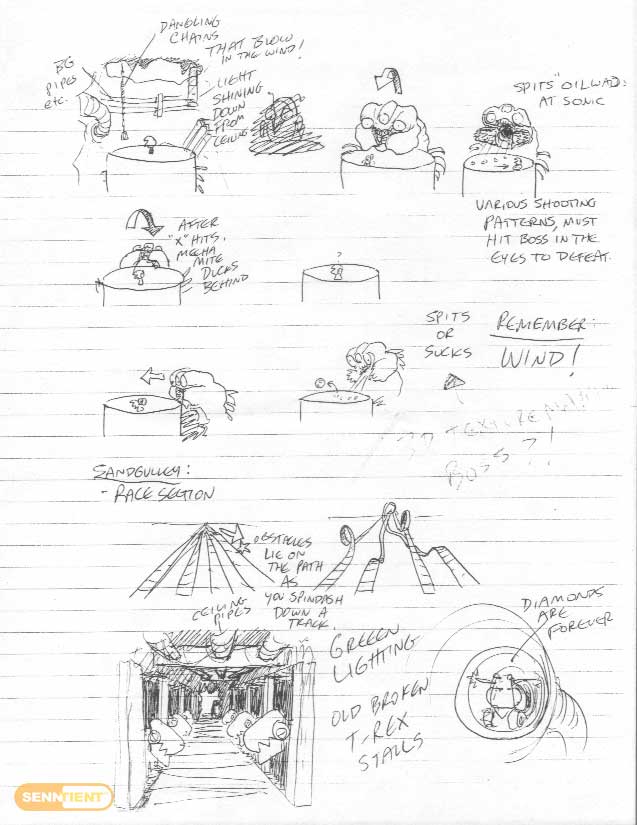 DANGLING
CHAINS
THAT BLOW
IN THE WIND!
BG
PIPES
ETC.
LIGHT
SHINING
DOWN
FROM
CEILING
SPITS "OILWAD"
AT SONIC
VARIOUS SHOOTING
PATTERNS, MUST
HIT BOSS IN THE
EYES TO DEFEAT.
AFTER
"X" HITS,
MECHA
MITE
DUCKS
BEHIND
?
SPITS
OR
SUCKS
REMEMBER:
WIND!
BOSS?!
SANDGULLEY:
- RACE SECTION
OBSTACLES
LIE ON
THE PATH
AS
YOU SPINDASH
DOWN A
TRACK.
CEILING
PIPES
GREEN
LIGHTING
OLD BROKEN
T-REX
STALLS
DIAMONDS
ARE
FOREVER
SENNTIENT